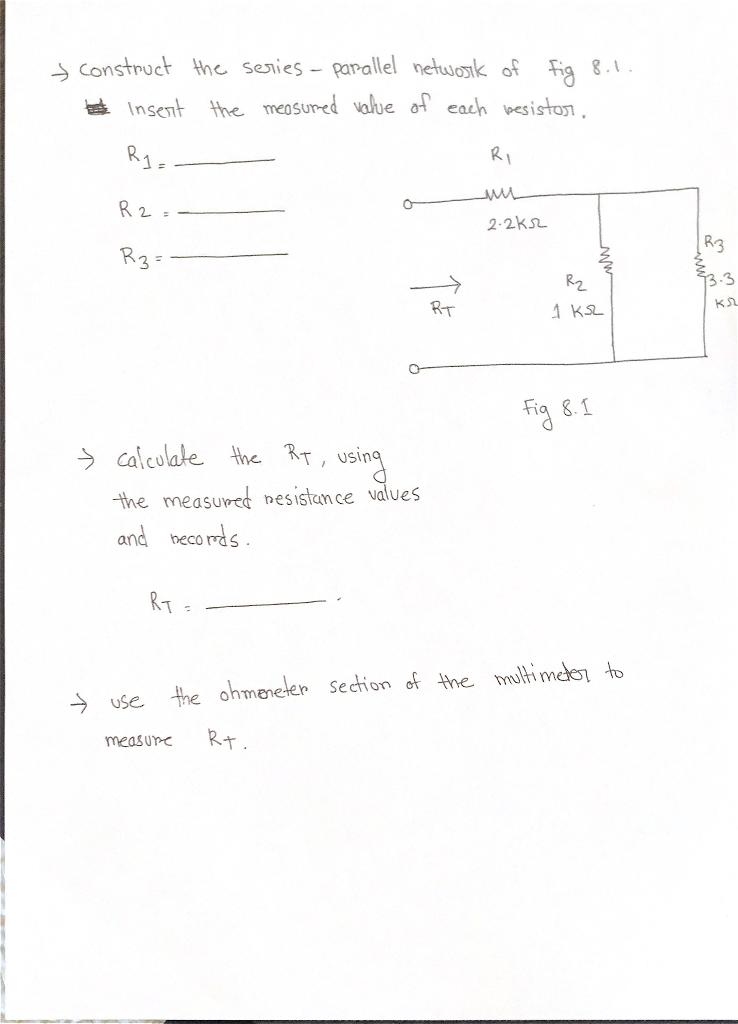 → Construct the series - parallel network of Fig 8.1.
Insert the measured value of each resistor.
R1 = ______
R2 = ______
R3 = ______
R1
2.2KΩ
R2
1 KΩ
R3
3.3
KΩ
RT
Fig 8.1
→ Calculate the RT, using
the measured resistance values
and records.
RT = ______.
→ use the ohmeneter section of the multimeter to
measure RT.